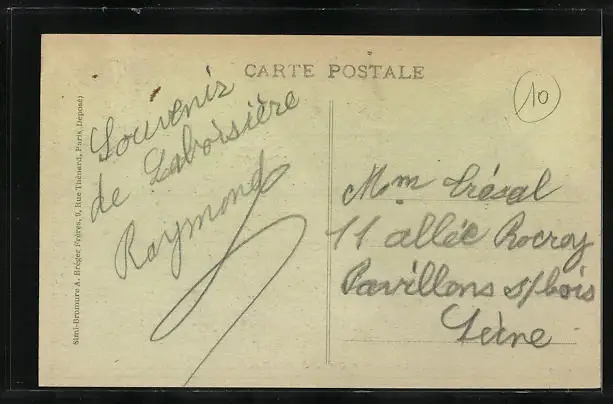 CARTE POSTALE
10
Souvenir
de Laboisière
Raymond
Mme Crésal
11 allée Rocroy
Pavillons s/bois
Seine
Simi-Bromure A. Bréger Frères, 9, Rue Thénard, Paris (Déposé)